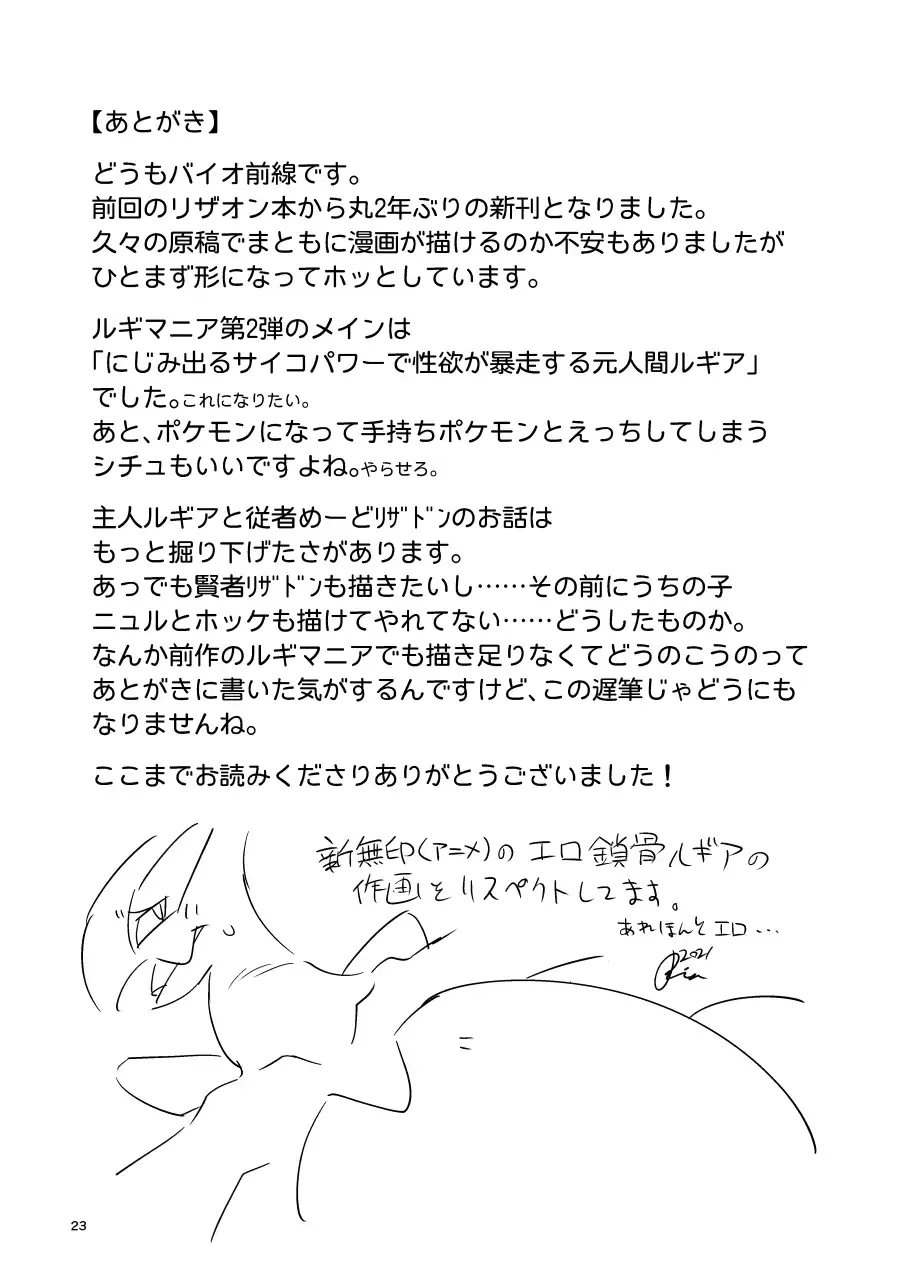 【あとがき】
どうもバイオ前線です。
前回のリザオン本から丸2年ぶりの新刊となりました。
久々の原稿でまともに漫画が描けるのか不安もありましたが
ひとまず形になってホッとしています。
ルギマニア第2弾のメインは
「にじみ出るサイコパワーで性欲が暴走する元人間ルギア」
でした。これになりたい。
あと、ポケモンになって手持ちポケモンとえっちしてしまう
シチュもいいですよね。やらせろ。
主人ルギアと従者めーどﾘｻﾞﾄﾞﾝのお話は
もっと掘り下げたさがあります。
あっでも賢者ﾘｻﾞﾄﾞﾝも描きたいし……その前にうちの子
ニュルとホッケも描けてやれてない……どうしたものか。
なんか前作のルギマニアでも描き足りなくてどうのこうのって
あとがきに書いた気がするんですけど、この遅筆じゃどうにも
なりませんね。
ここまでお読みくださりありがとうございました！
新無印(アニメ)の エロ鎖骨ルギアの
作画をリスペクトしてます。
あれほんとエロ...
2021
23